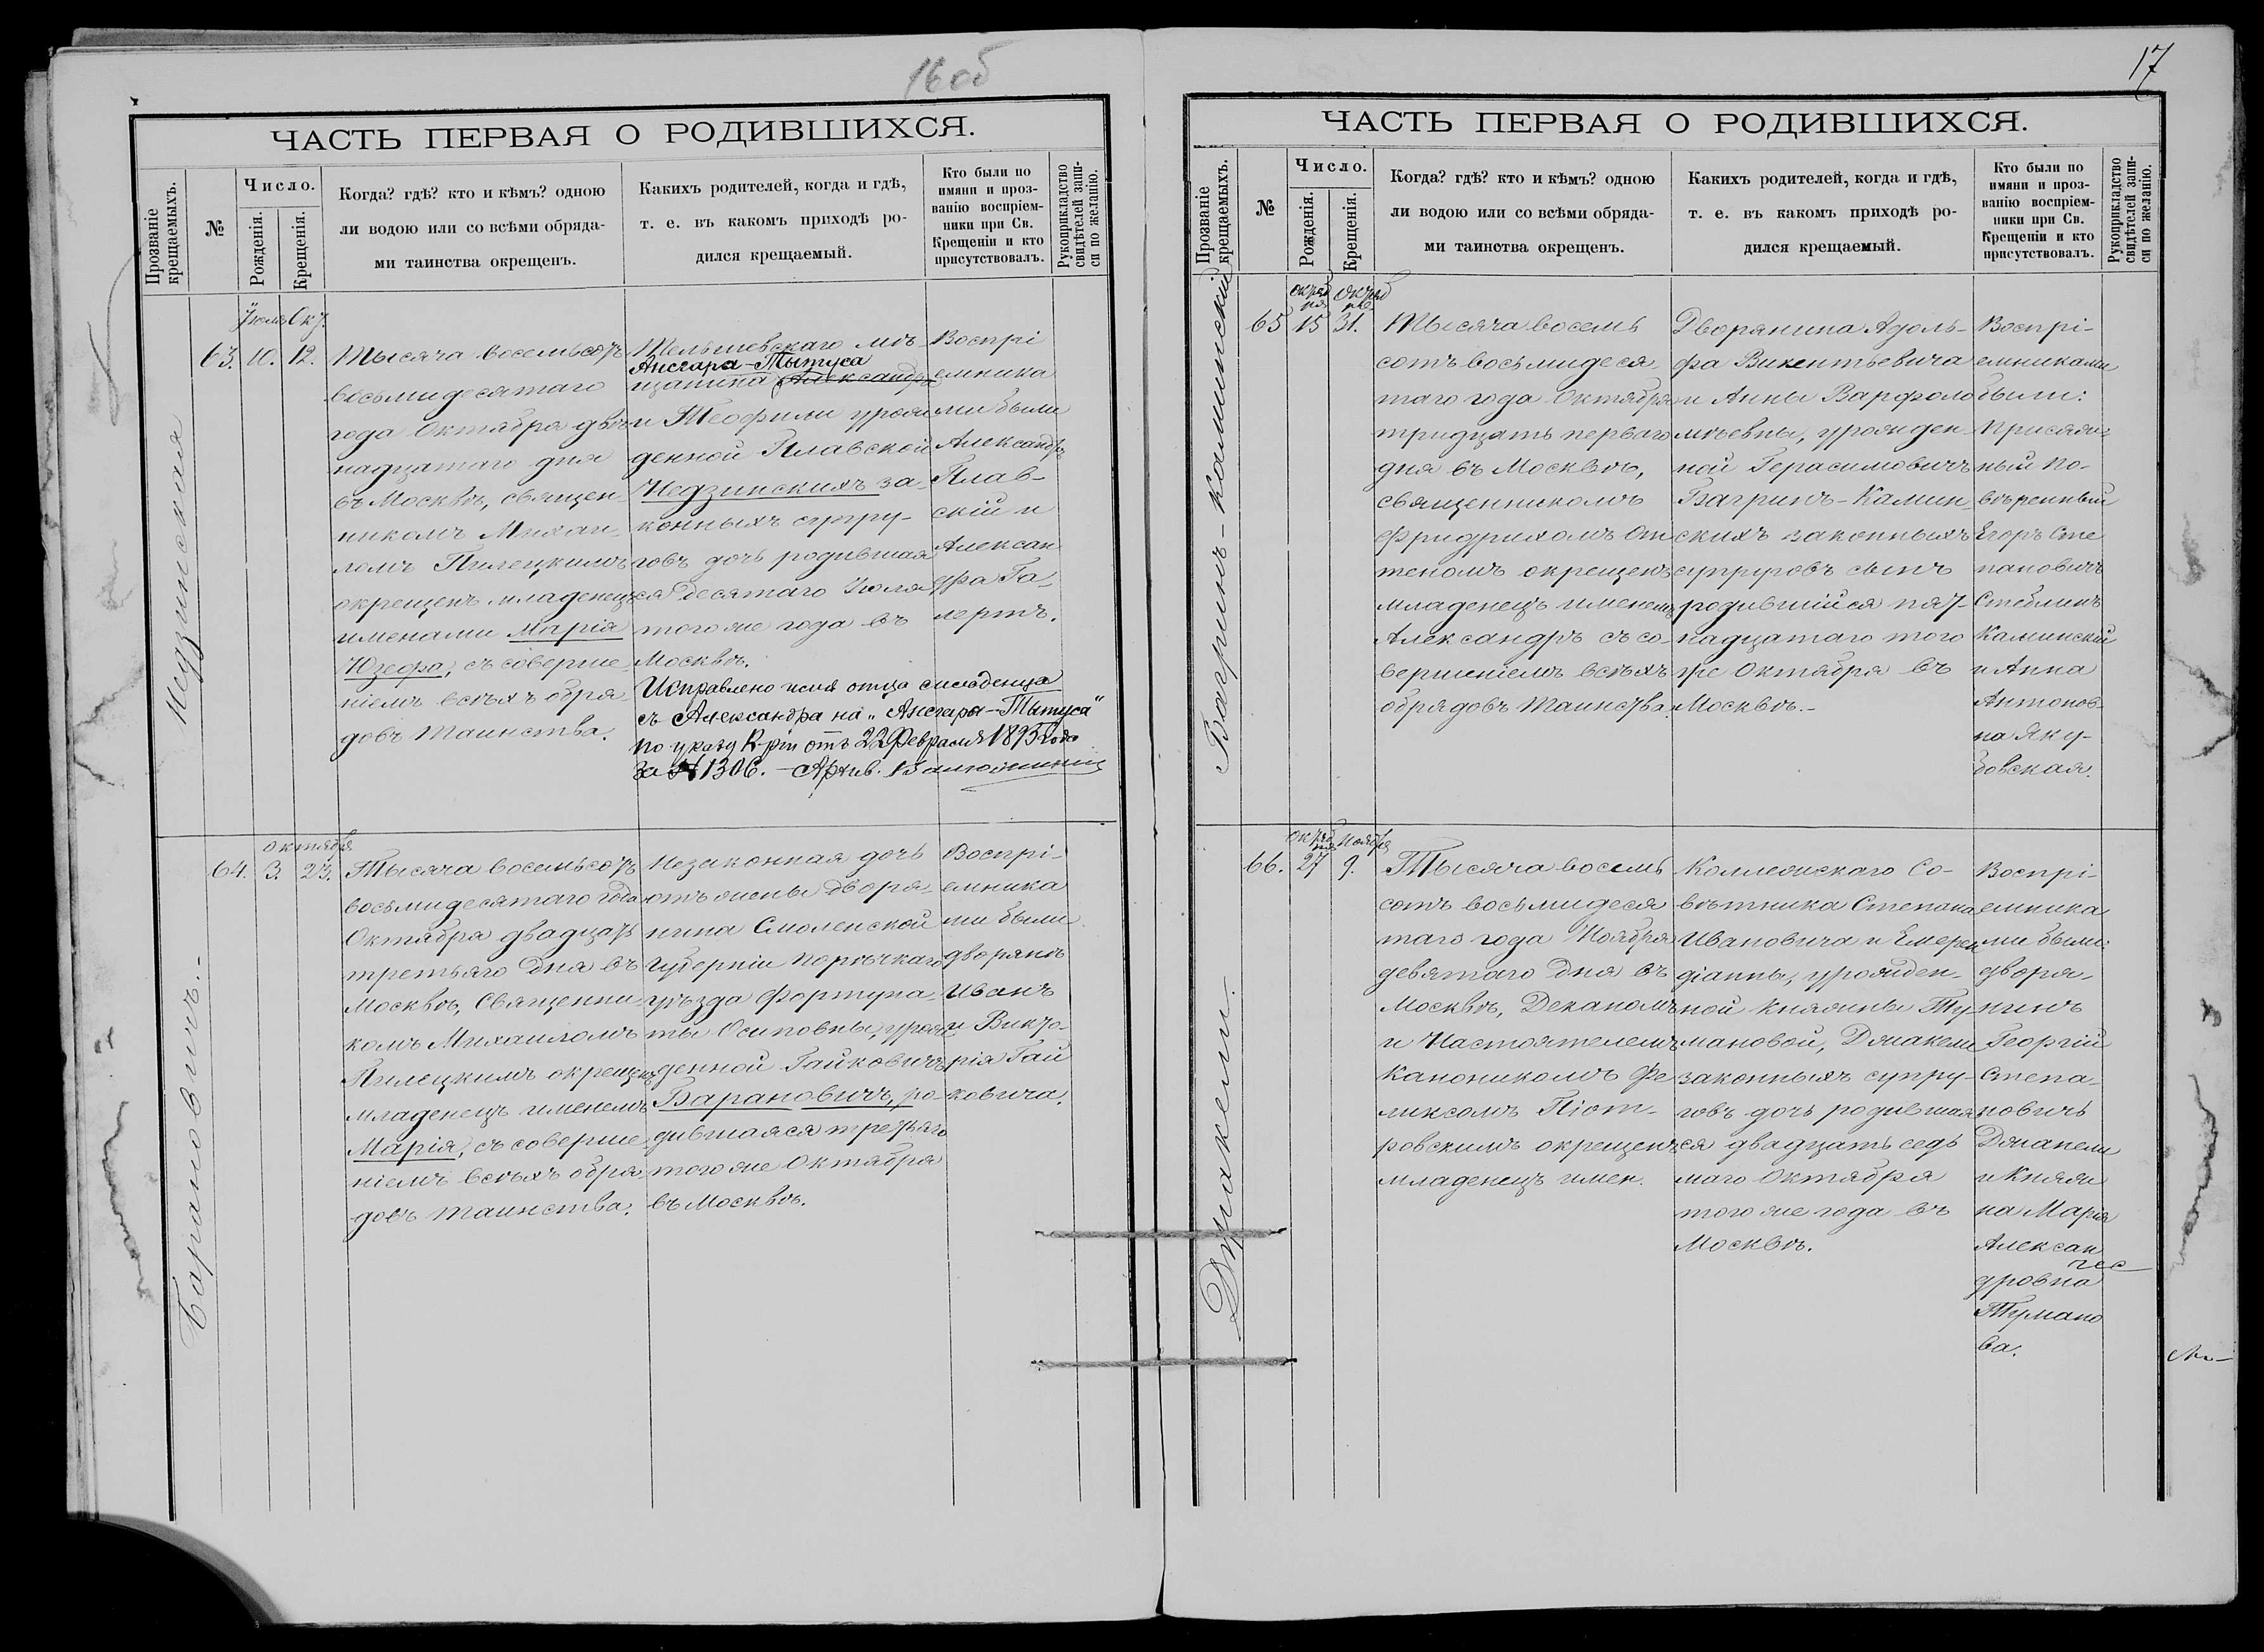 16 об
ЧАСТЬ ПЕРВАЯ О РОДИВШИХСЯ.
Прозваніе крещаемыхъ.
№
Число.
Рожденія.
Крещенія.
Когда? гдѣ? кто и кѣмъ? одною
ли водою или со всѣми обряда-
ми таинства окрещенъ.
Какихъ родителей, когда и гдѣ,
т. е. въ какомъ приходѣ ро-
дился крещаемый.
Кто были по
имяни и проз-
ванію воспріем-
ники при Св.
Крещеніи и кто
присутствовалъ.
Рукоприкладство
свидѣтелей запи-
си по желанію.
Недзинская
Іюля Окт.
63. 10. 12.
Тысяча восемьсотъ
восьмидесятаго
года Октября двѣ
надцатаго дня
въ Москвѣ, священ
никомъ Михаи-
ломъ Пилецкимъ
окрещенъ младенецъ
именами Марія
Юзефа, съ соверше
ніемъ всѣхъ обря
довъ таинства.
Тельшевскаго мѣ
Ансгара-Тытуса
щанина Александра
и Теофили урож
денной Плавской
Недзинскихъ за-
конныхъ супру-
говъ дочь родившая
ся десятаго Іюля
того же года въ
Москвѣ.
Исправлено имя отца младенца
съ Александра на „Ансгара-Тытуса“
по указу К-ріи отъ 22 Февраля 1895 года
за № 1306. — Архив.
Воспрі
емника
ми были
Александръ
Плав-
скій и
Алексан
дра Га-
лертъ.
Барановичъ.-
октября
64. 3. 23.
Тысяча восемьсотъ
восьмидесятаго года
Октября двадцать
третьяго дня въ
Москвѣ, Священни
комъ Михаиломъ
Пилецкимъ окрещенъ
младенецъ именемъ
Марія, съ соверше
ніемъ всѣхъ обря
довъ таинства.
Незаконная дочь
отъ жены дворя-
нина Смоленской
Губерніи Порѣчкаго
уѣзда Фортуна-
ты Осиповны, урож
денной Гайковичъ
Барановичъ, ро-
дившаяся третьяго
того же Октября
въ Москвѣ.
Воспрі-
емника
ми были
дворянъ
Иванъ
и Викто-
рія Гай
ковича.
17
ЧАСТЬ ПЕРВАЯ О РОДИВШИХСЯ.
Прозваніе крещаемыхъ.
№
Число.
Рожденія.
Крещенія.
Когда? гдѣ? кто и кѣмъ? одною
ли водою или со всѣми обряда-
ми таинства окрещенъ.
Какихъ родителей, когда и гдѣ,
т. е. въ какомъ приходѣ ро-
дился крещаемый.
Кто были по
имяни и проз-
ванію воспріем-
ники при Св.
Крещеніи и кто
присутствовалъ.
Рукоприкладство
свидѣтелей запи-
си по желанію.
Багринъ-Каминскій
Октября Октября
65 15 31.
Тысяча восемь
сотъ восьмидеся-
таго года Октября
тридцать перваго
дня въ Москвѣ,
священникомъ
Фридрихомъ От
теномъ окрещенъ
младенецъ именемъ
Александръ съ со-
вершеніемъ всѣхъ
обрядовъ таинства.
Дворянина Адоль-
фа Викентьевича
и Анны Варфоло
мѣевны, урожден
ной Герасимовичъ
Багринъ-Камин
скихъ законныхъ
супруговъ сынъ
родившійся пят-
надцатаго того
же Октября въ
Москвѣ.-
Воспрі-
емниками
были:
Присяж-
ный по-
вѣренный
Егоръ Сте
пановичъ
Стеблинъ
Каминскій
и Анна
Антонов-
на Яку-
бовская.
Джакели.
Октября Ноября
66. 27 9.
Тысяча восемь
сотъ восьмидеся
таго года Ноября
девятаго дня въ
Москвѣ, Деканомъ
и Настоятелемъ
Каноникомъ Фе
ликсомъ Піот-
ровскимъ окрещенъ
младенецъ имен.
Коллежскаго Со-
вѣтника Степана
Ивановича и Емерен
ціанны, урожден-
ной княжны Ту-
мановой, Джакели
законныхъ супру-
говъ дочь родившая
ся двадцать седь
маго Октября
того же года въ
Москвѣ.
Воспрі-
емника
ми были:
дворя-
нинъ
Георгій
Степа-
новичъ
Джапели
и Княж
на Марія
Алексан
дровна
Тумано
ва.